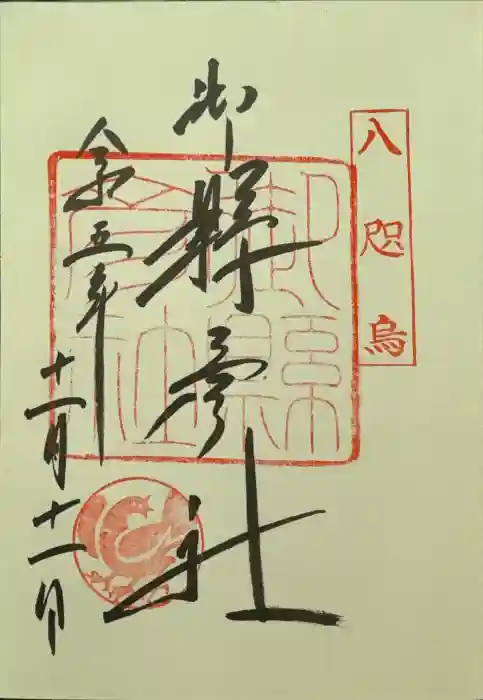 八咫烏
御縣彦社
令和五年
十一月十一日
御縣
彦社